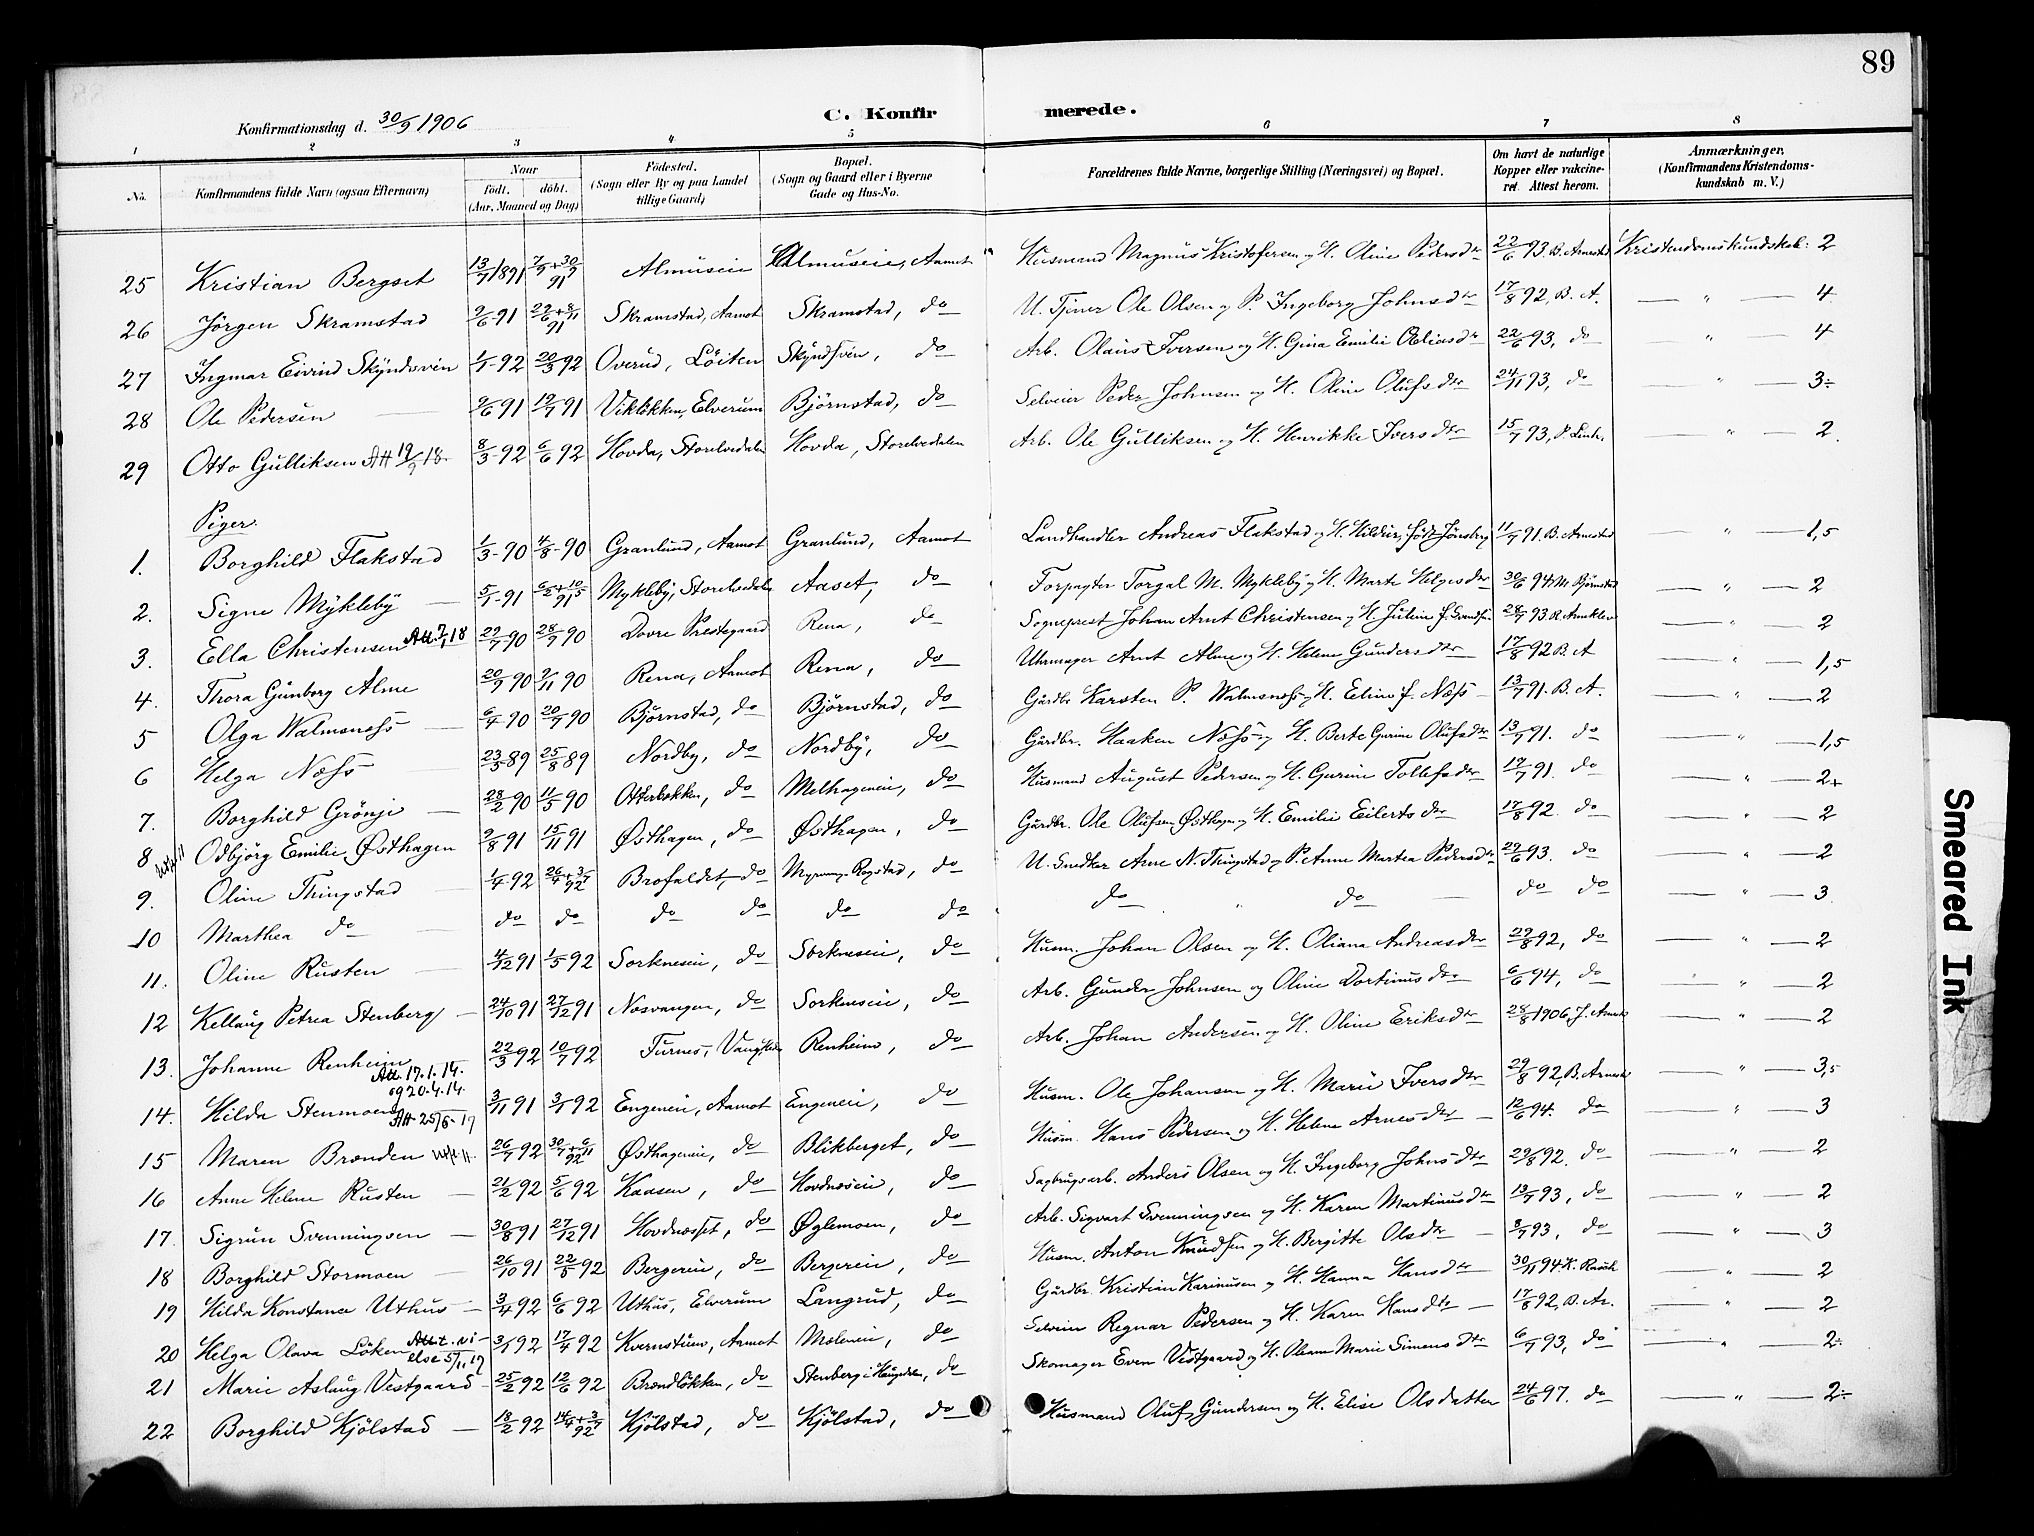 89
Konfirmationsdag d. 30/9 1906
C. Konfirmerede.
1 2 3 4 5 6 7 8
No. Konfirmandens fulde Navn (ogsaa Efternavn) Naar født. døbt. (Aar, Maaned og Dag) Fødested. (Sogn eller By og paa Landet tillige Gaard) Bopæl. (Sogn og Gaard eller i Byerne Gade og Hus-No. Forældrenes fulde Navne, borgerlige Stilling (Næringsvei) og Bopæl. Om havt de naturlige Kopper eller vakcineret. Attest herom. Anmærkninger. (Konfirmandens Kristendomskundskab m. V.)
25 Kristian Bergset 13/7 1891 7/9 + 30/9 91 Almuseie Almuseie, Aamot Husmand Magnus Kristofersen og H. Oline Pedersdtr 22/6 93. B. Arnestad Kristendomskundskab: 2
26 Jörgen Skramstad 2/6-91 29/6 + 8/11 91 Skramstad, Aamot Skramstad, do U. Tjener Ole Olsen og P. Ingeborg Johnsdtr 17/8 92, B. A. — " — 4
27 Ingmar Eivind Skyndsvên 1/1-92 20/3 92 Overud, Löiten Skyndsven, do Arb. Olaus Iversen og H. Gina Emilie Oliasdtr 22/6 93, do — " — 4
28 Ole Pedersen 9/6 91 19/7 91 Viklökken, Elverum Björnstad, do Selveier Peder Johnsen og H. Oline Olufsdtr 24/11 93, do — " — 3÷
29 Otto Gulliksen Att 19/9 18. 8/3-92 6/6 92 Hovda, Storelvedalen Hovda, Storelvedalen Arb. Ole Gulliksen og H. Henrikke Iversdtr 15/7 93, P. — " — 2
Piger.
1. Borghild Flakstad 1/3-90 4/8-90 Granlund, Aamot Granlund, Aamot Landhandler Andreas Flakstad og H. Hildur, född Jönsberg 11/7 91 B. Arnestad — " — 1,5
2. Signe Mykleby 5/1-91 6/2 + 10/5 91 Mykleby, Storelvedalen Aaset, do Forpagter Torgal M. Mykleby og H. Marte Helgesdtr 30/6 94 M. Björnstad — " — 2
3. Ella Christensen Att. 7/1 18 29/7-90 28/9 90 Dovre Prestegaard Rena, do Sogneprest Johan Arnt Christensen og H. Juline f. 28/7 93 — " — 2
4. Thora Günborg Alme 20/9 90 2/11 90 Rena, Aamot Rena, do Uhrmager Arnt Alme og H. Helene Gundersdtr 17/8 92 B. A — " — 1,5
5 Olga Walmsness 6/4-90 20/7 90 Björnstad, do Björnstad, do Gårdbr Karsten P. Walmsness og H. Eline f. Næss 13/7 91. B. A. — " — 2
6 Helga Næss 23/5 89 25/8 89 Nordby, do Nordby, do Gårdbr. Haaken Næss og H. Berte Gurine Olufsdtr 13/7 91. do — " — 1,5
7. Borghild Grönje 28/2 90 11/5 90 Otterbekken, do Melhageneie, do Husmand August Pedersen og H. Gurine Tollefsdtr 17/7 91. do — " — 2+
8 Odbjörg Emilie Østhagen 9/8-91 15/11 91 Østhagen, do Østhagen, do Gårdbr. Ole Olufsen Østhagen og H. Emilie Eilertsdtr 17/8 92. do — " — 2
9. Oline Thingstad 1/4-92 26/4 + 3/7 92 Brofaldet, do Rogstad, do U. Snedker Arne N. Thingstad og P. Anne Martea Pedersdtr 29/6 93. do — " — 2
10 Marthea do do do do do do do do " do do do — " — 3
11. Oline Rusten 4/12 91 1/5 92 Sorkneseie, do Sorkneseie, do Husm. Johan Olsen og H. Oliana Andreasdtr 29/8 92, do — " — 2
12 Kellaug Petrea Stenberg 24/10 91 27/12 91 Nosvangen, do Sorkneseie, do Arb. Gunder Johnsen og Oline Dortinusdtr 6/6 94, do — " — 2
13. Johanne Renheim Att. 17.1.14. og 20.4.14. 22/3 92 10/7 92 Furnes, Vang, Renheim, do Arb. Johan Andersen og H. Oline Eriksdtr 28/8 1906, J. — " — 2
14. Hilda Stenmoen Att 25/5-17 3/11 91 3/1 92 Engeneie, Aamot Engeneie, do Husm. Ole Johansen og H. Marie Iversdtr 29/8 92, B. Arnestad — " — 3,5
15 Maren Brænden 26/7 92 30/7 + 6/11 92 Østhageneie, do Blikberget, do Husm. Hans Pedersen og H. Helene Arnesdtr 12/6 94. do — " — 3
16 Anne Helene Rusten 21/2 92 5/6 92 Kaasen, do Hovdnæseie, do Sagbrugsarb. Anders Olsen og H. Ingeborg Johnsdtr 29/8 92. do — " — 2
17. Sigrun Svenningsen 30/8 91 27/12 91 Hovdnæsset, do Øglemoen, do Arb. Sigvart Svenningsen og H. Karen Martinusdtr 13/7 93, do — " — 2
18 Borghild Stormoen 26/10 91 22/5 92 Bergereie, do Bergereie, do Husm. Anton Knudsen og H. Bergitte Olsdtr 3/7 93, do — " — 3
19 Hilda Konstance Uthus 3/4 92 6/6 92 Uthus, Elverum Langrud, do Gårdbr. Kristian Karinusen og H. Hanna Hansdtr 30/11 94 K. Rasch — " — 2
20 Helga Olava Löken Att t. vielse 5/11 17 3/1 92 17/4 92 Kvernstuen, Aamot Mæleneie, do Selveier Regnar Pedersen og H. Karen Hansdtr 17/8 92, B. Ar. — " — 2
21 Marie Aslaug Vestgaard 25/2 92 12/6 92 Brændløkken, do Stenberg i Haugedalen, do Skomager Even Vestgaard og H. Oleane Marie Simensdtr 6/7 93, do — " — 2÷
22 Borghild Kjölstad 18/2 92 14/4 + 3/7 92 Kjölstad, do Kjölstad, do Husmand Oluf Gundersen og H. Elise Olsdatter 24/6 97. do — " — 2÷
Smeared Ink